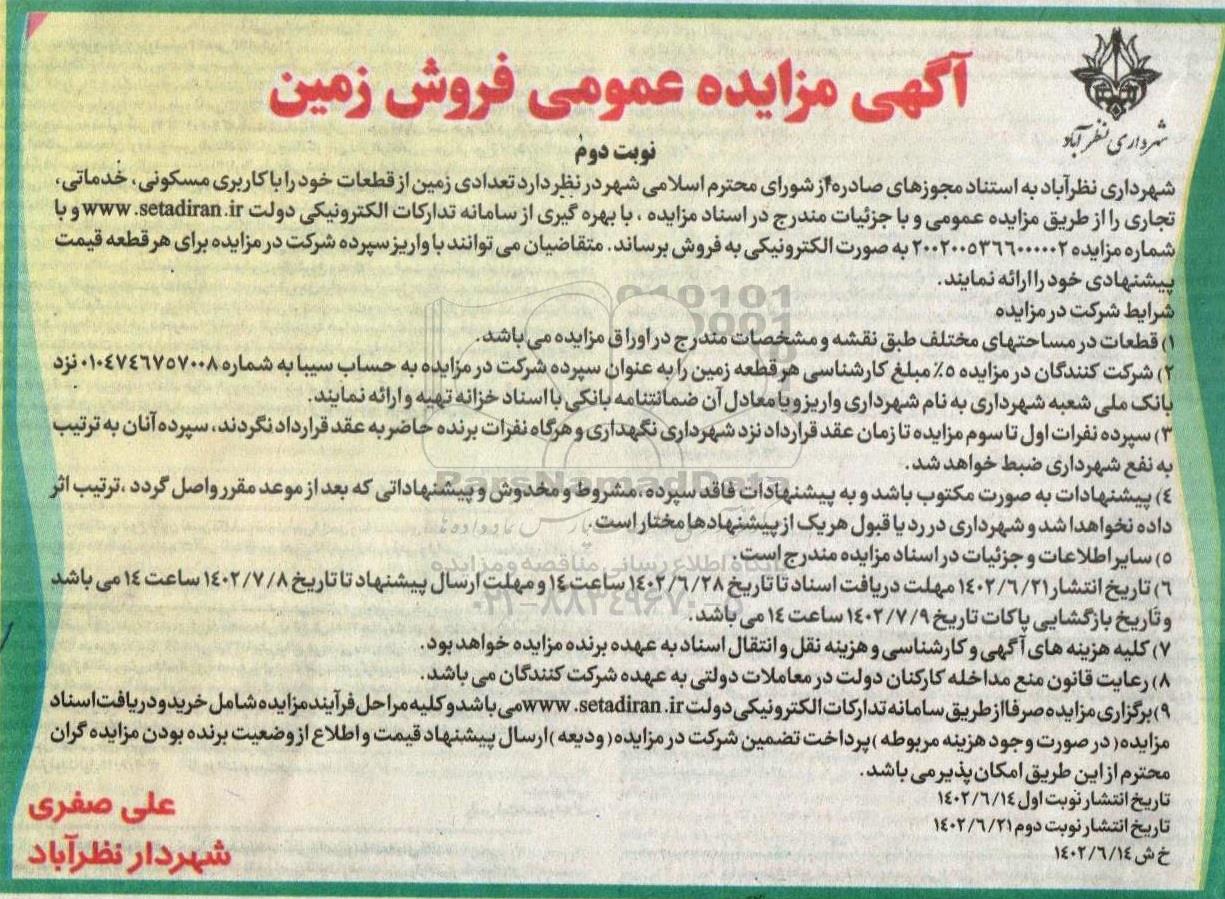 شهرداری نظرآباد
آگهی مزایده عمومی فروش زمین
نوبت دوم
شهرداری نظرآباد به استناد مجوزهای صادره از شورای محترم اسلامی شهر در نظر دارد تعدادی زمین از قطعات خود را با کاربری مسکونی، خدماتی،
تجاری را از طریق مزایده عمومی و با جزئیات مندرج در اسناد مزایده ، با بهره گیری از سامانه تدارکات الکترونیکی دولت www.setadiran.ir و با
شماره مزایده ۲۰۰۲۰۰۵۳۶۶۰۰۰۰۰۲ به صورت الکترونیکی به فروش برساند. متقاضیان می توانند با واریز سپرده شرکت در مزایده برای هر قطعه قیمت
پیشنهادی خود را ارائه نمایند.
شرایط شرکت در مزایده
۱) قطعات در مساحتهای مختلف طبق نقشه و مشخصات مندرج در اوراق مزایده می باشد.
۲) شرکت کنندگان در مزایده ۵٪ مبلغ کارشناسی هر قطعه زمین را به عنوان سپرده شرکت در مزایده به حساب سیبا به شماره ۰۱۰۴۷۴۶۷۵۷۰۰۸ نزد
بانک ملی شعبه شهرداری به نام شهرداری واریز و یا معادل آن ضمانتنامه بانکی با اسناد خزانه تهیه و ارائه نمایند.
۳) سپرده نفرات اول تا سوم مزایده تا زمان عقد قرارداد نزد شهرداری نگهداری و هرگاه نفرات برنده حاضر به عقد قرارداد نگردند، سپرده آنان به ترتیب
به نفع شهرداری ضبط خواهد شد.
۴) پیشنهادات به صورت مکتوب باشد و به پیشنهادات فاقد سپرده ،مشروط و مخدوش و پیشنهاداتی که بعد از موعد مقرر واصل گردد ،ترتیب اثر
داده نخواهد شد و شهرداری در رد یا قبول هر یک از پیشنهادها مختار است.
۵) سایر اطلاعات و جزئیات در اسناد مزایده مندرج است.
۶) تاریخ انتشار ۱۴۰۲/۶/۲۱ مهلت دریافت اسناد تا تاریخ ۱۴۰۲/۶/۲۸ ساعت ۱۴ و مهلت ارسال پیشنهاد تا تاریخ ۱۴۰۲/۷/۸ ساعت ۱۴ می باشد
و تاریخ بازگشایی پاکات تاریخ ۱۴۰۲/۷/۹ ساعت ۱۴ می باشد.
۷) کلیه هزینه های آگهی و کارشناسی و هزینه نقل و انتقال اسناد به عهده برنده مزایده خواهد بود.
۸) رعایت قانون منع مداخله کارکنان دولت در معاملات دولتی به عهده شرکت کنندگان می باشد.
۹) برگزاری مزایده صرفا از طریق سامانه تدارکات الکترونیکی دولت www.setadiran.ir می باشد و کلیه مراحل فرآیند مزایده شامل خرید و دریافت اسناد
مزایده( در صورت وجود هزینه مربوطه )پرداخت تضمین شرکت در مزایده( ودیعه )ارسال پیشنهاد قیمت و اطلاع از وضعیت برنده بودن مزایده گران
محترم از این طریق امکان پذیر می باشد.
تاریخ انتشار نوبت اول ۱۴۰۲/۶/۱۴
تاریخ انتشار نوبت دوم ۱۴۰۲/۶/۲۱
خ ش ۱۴۰۲/۶/۱۴
علی صفری
شهردار نظرآباد
ParsNamadData
پایگاه اطلاع رسانی مناقصه و مزایده
۰۲۱-۸۸۳۴۹۶۷۰